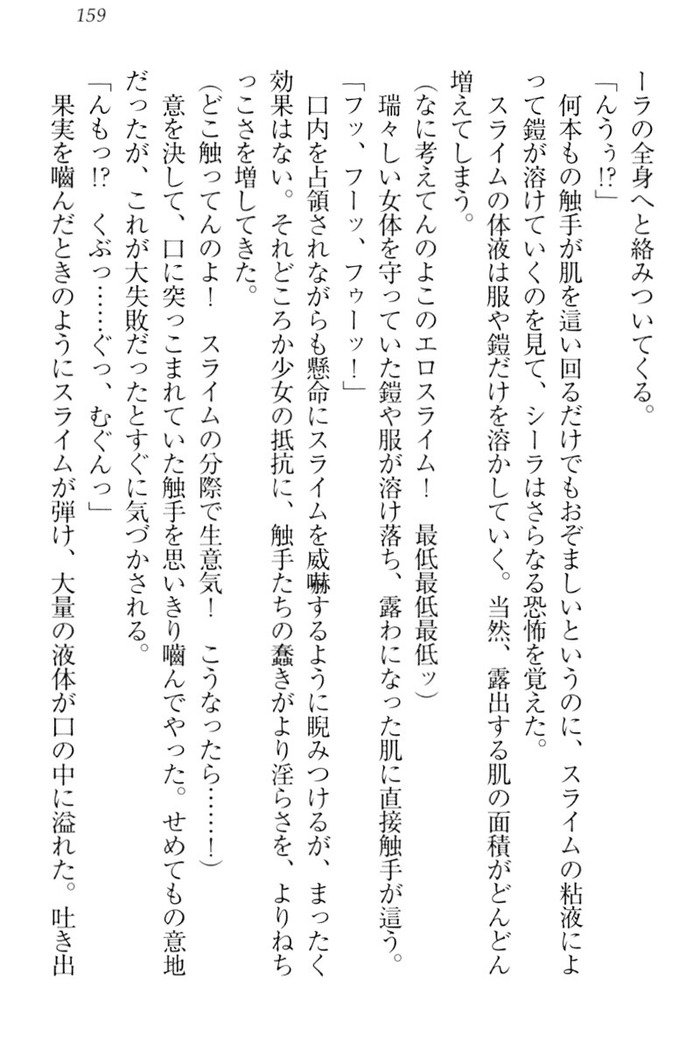 159
ーラの全身へと絡みついてくる。
「んうぅ!?」
何本もの触手が肌を這い回るだけでもおぞましいというのに、スライムの粘液によ
って鎧が溶けていくのを見て、シーラはさらなる恐怖を覚えた。
スライムの体液は服や鎧だけを溶かしていく。当然、露出する肌の面積がどんどん
増えてしまう。
(なに考えてんのよこのエロスライム！　最低最低最低ッ)
瑞々しい女体を守っていた鎧や服が溶け落ち、露わになった肌に直接触手が這う。
「フッ、フーッ、フゥーッ！」
口内を占領されながらも懸命にスライムを威嚇するように睨みつけるが、まったく
効果はない。それどころか少女の抵抗に、触手たちの蠢きがより淫らさを、よりねち
っこさを増してきた。
(どこ触ってんのよ！　スライムの分際で生意気！　こうなったら………！)
意を決して、口に突っこまれていた触手を思いきり嚙んでやった。せめてもの意地
だったが、これが大失敗だったとすぐに気づかされる。
「んもっ!?　くぶっ……ぐっ、むぐんっ」
果実を嚙んだときのようにスライムが弾け、大量の液体が口の中に溢れた。吐き出